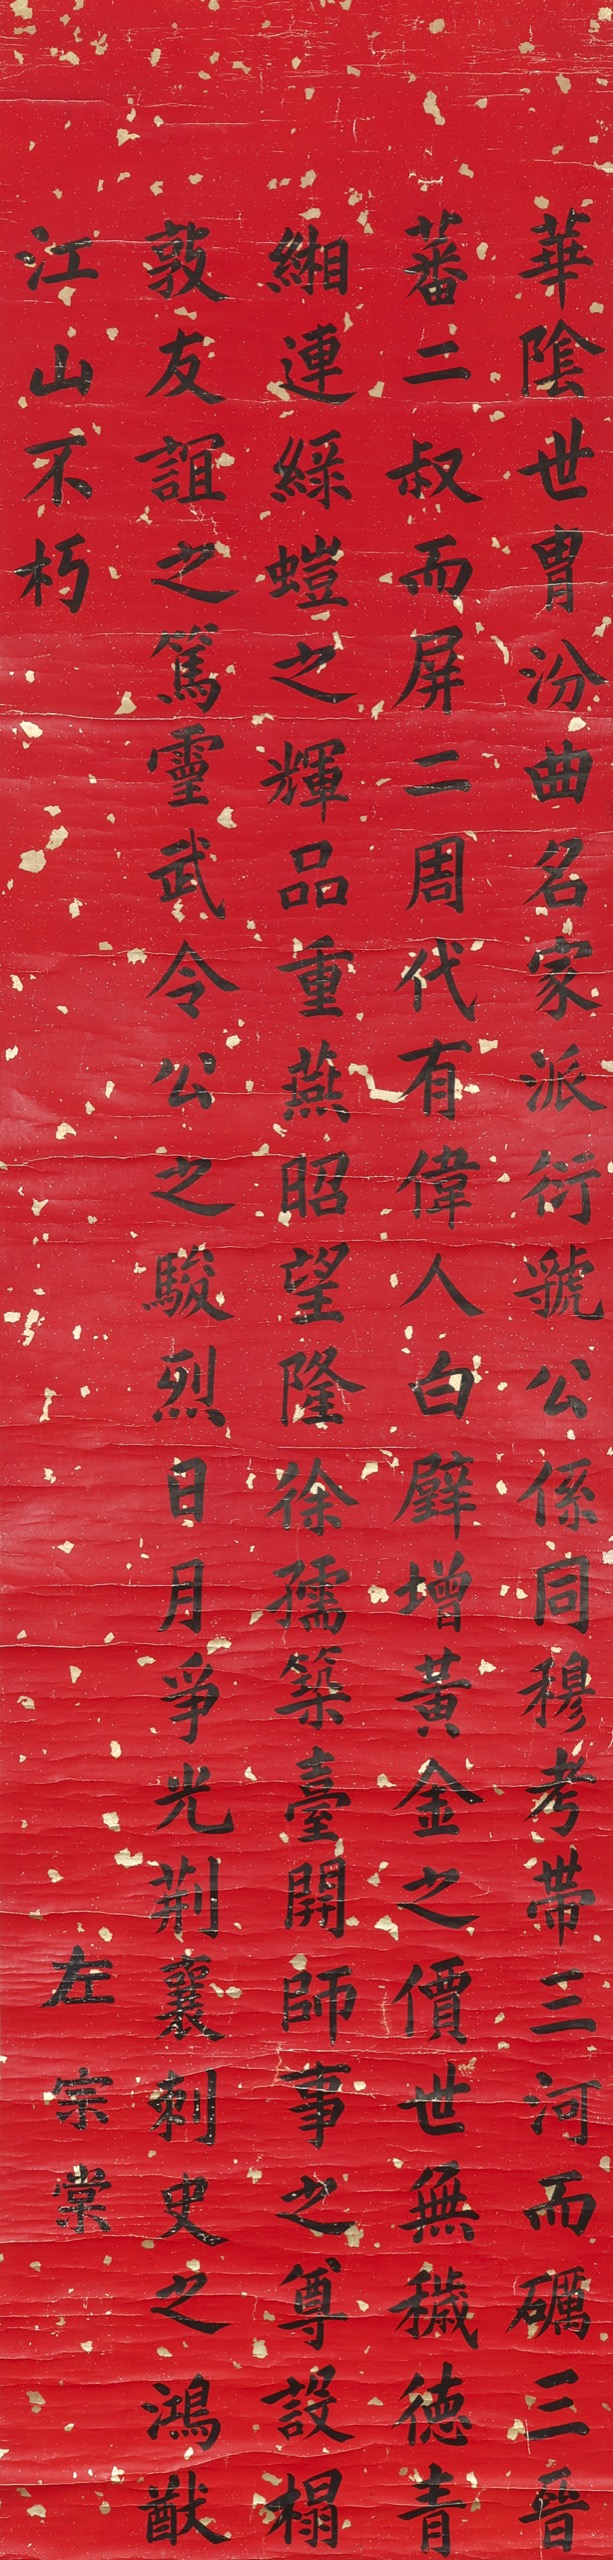 華陰世胄汾曲名家派衍虢公係同穆考帶三河而礪三晉
蕃二叔而屏二周代有偉人白璧增黃金之價世無穢德青
緗連綠螘之輝品重燕昭望隆徐孺築臺開師事之尊設榻
敦友誼之篤靈武令公之駿烈日月爭光荆襄刺史之鴻猷
江山不朽
左宗棠